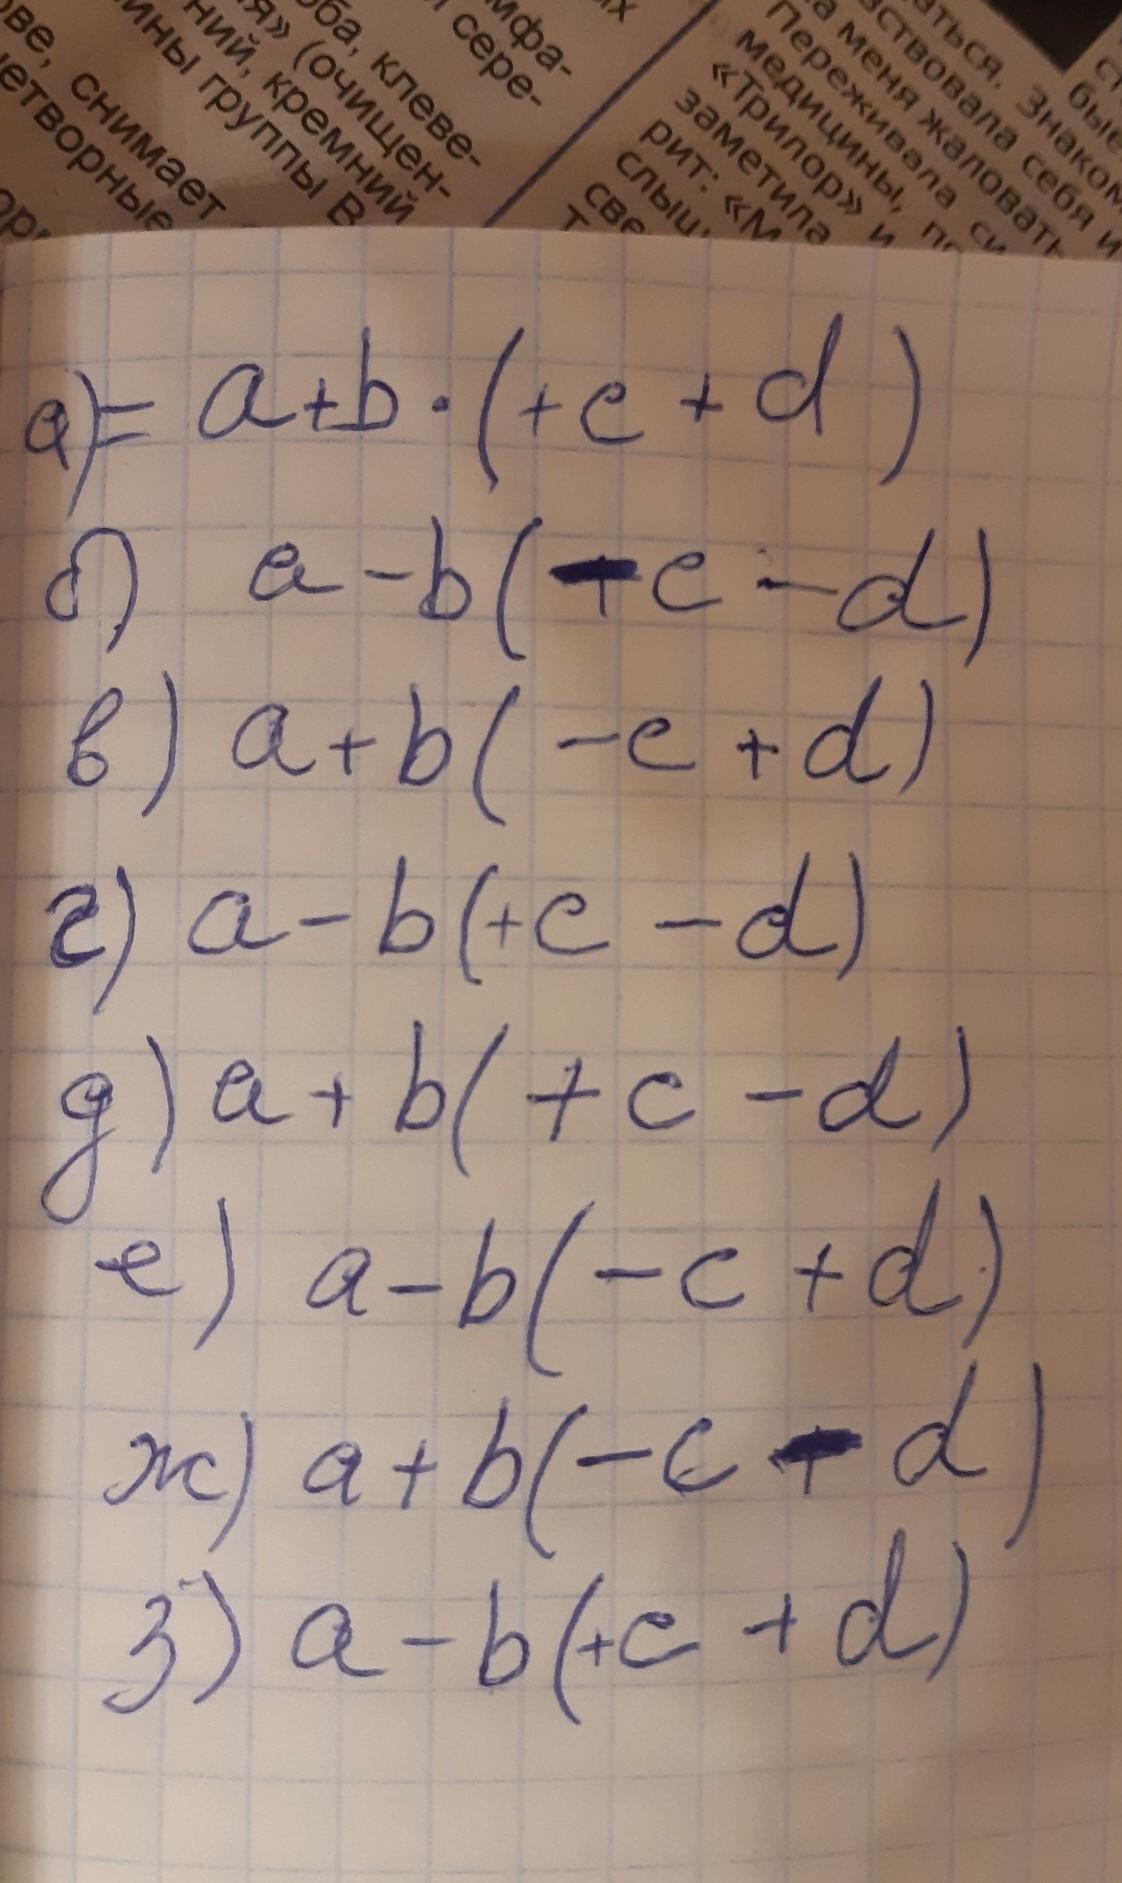 ба, клеве-
ве, снимает
етворные
я» (очищен-
ний, кремний
ины группы В
мфа-
сере-
их
аться. Знаком
вствовала себя и
на меня жаловать
Переживала
медицины,
«Трилор» и
заметила
рит: «М
слыш
све
а) = a + b · (+c + d)
б) a - b(-c - d)
в) a + b(-c + d)
г) a - b(+c - d)
д) a + b(+c - d)
е) a - b(-c + d)
ж) a + b(-c - d)
з) a - b(+c + d)